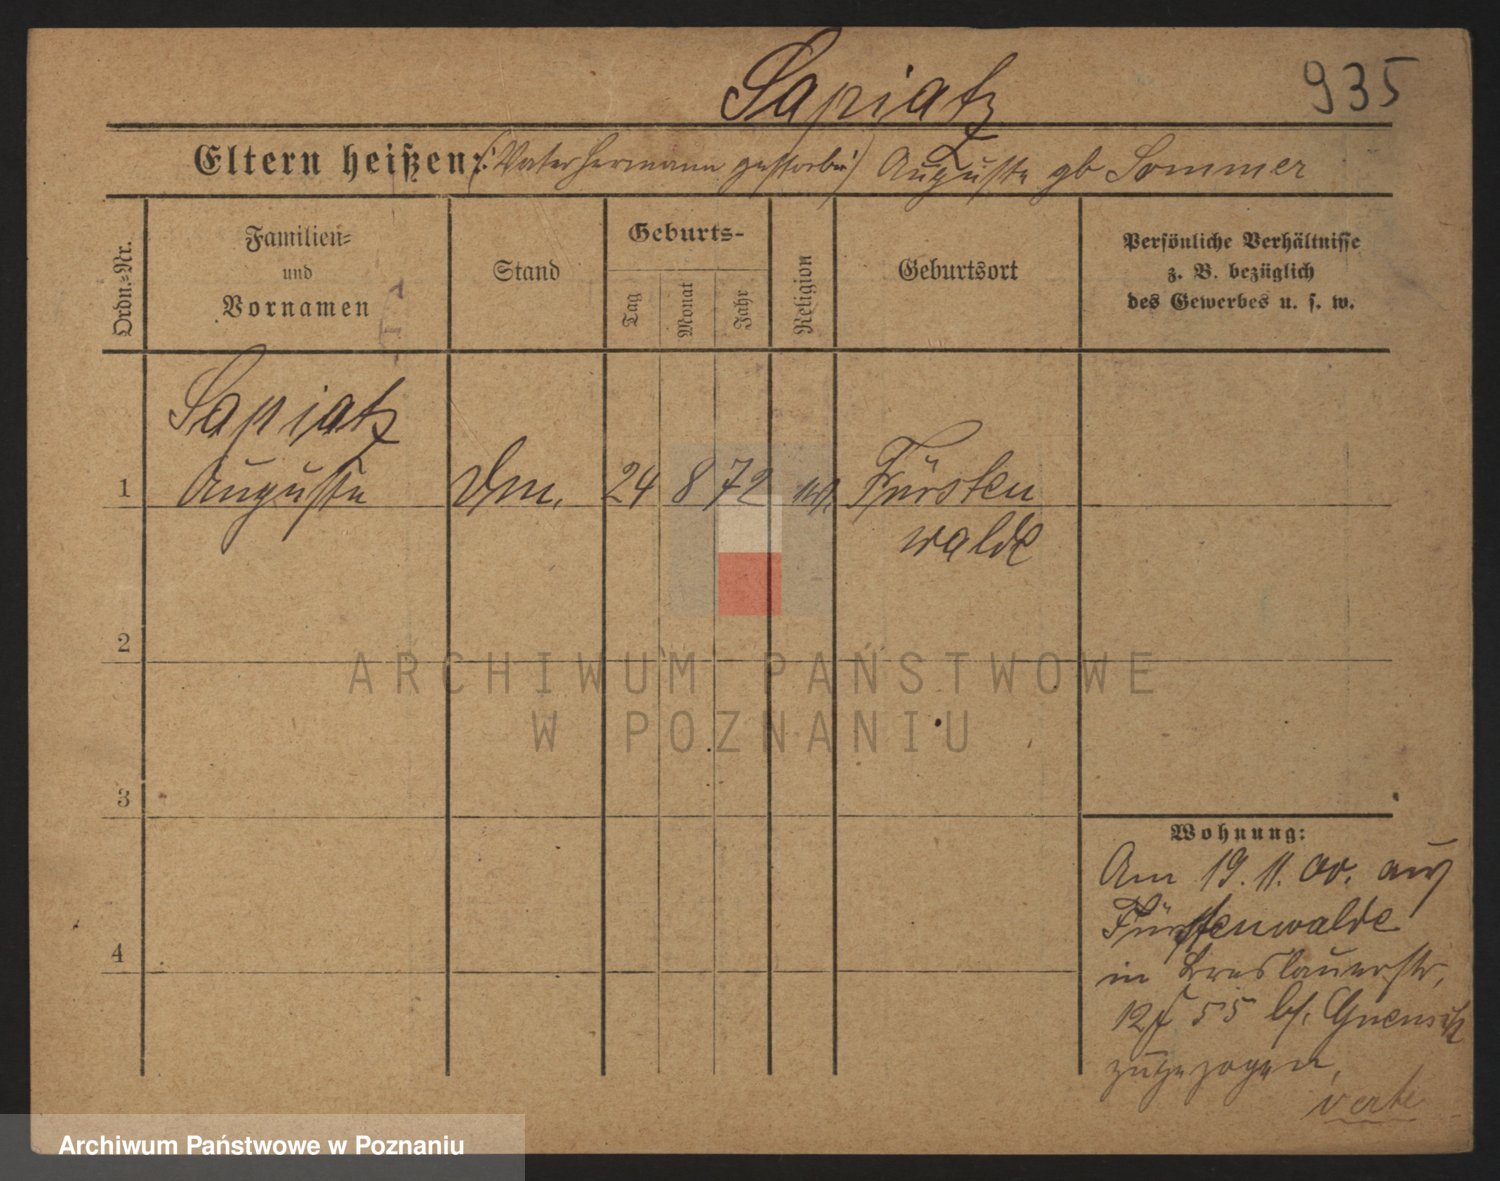 Sapiatz
935
Eltern heißen: (: Vater Hermann gestorben :) Auguste gb Sommer
Ordn.-Nr.
Familien-
und
Vornamen
Stand
Geburts-
Tag
Monat
Jahr
Religion
Geburtsort
Persönliche Verhältnisse
z. B. bezüglich
des Gewerbes u. s. w.
Sapiatz
1 Auguste 24 8 72 Fürsten
walde
2
ARCHIWUM PAŃSTWOWE
W POZNANIU
3
Wohnung:
Am 19. 11. 00. aus
Fürstenwalde
4
in Breslauerstr,
12 55 bf.
zugezogen,
verte
Archiwum Państwowe w Poznaniu